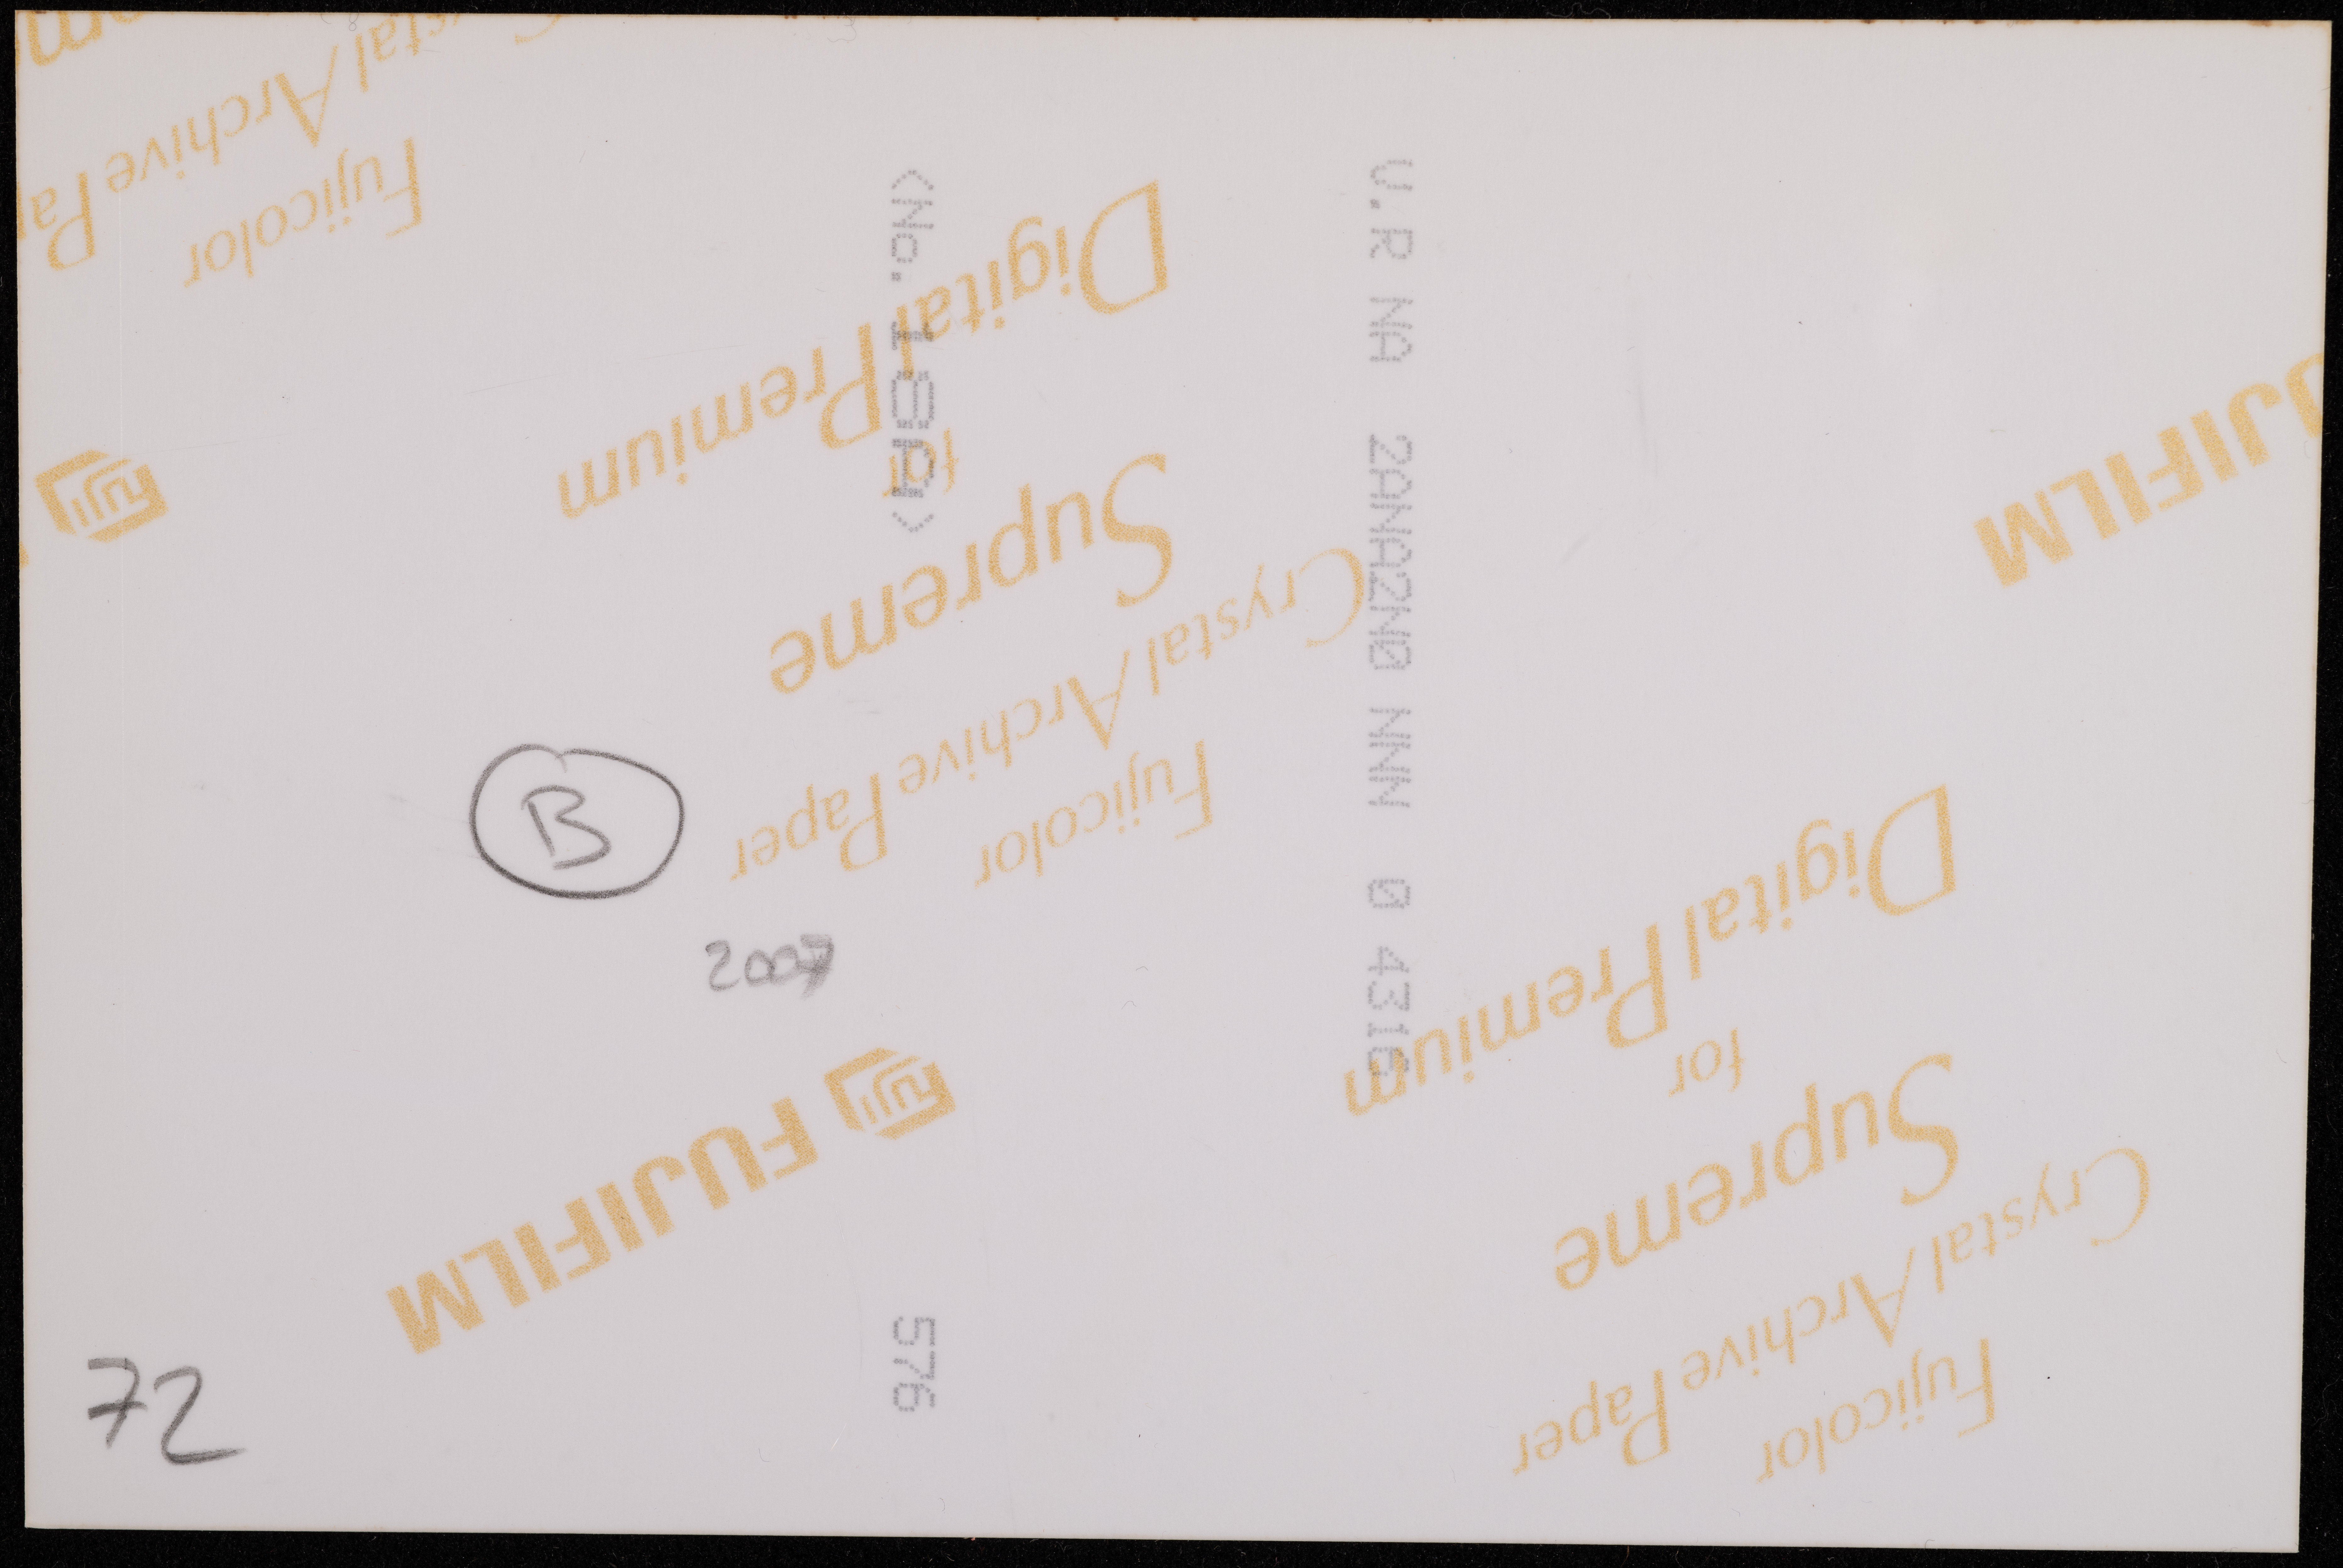 Fujicolor
Crystal Archive Paper
Supreme
for
Digital Premium
FUJIFILM
Fujicolor
Crystal Archive Paper
Supreme
for
Digital Premium
Fujicolor
stal Archive Pa
JIFILM
<No.
576
U.R NA 2ANA2N0 NNN 0 4316
B
2007
72